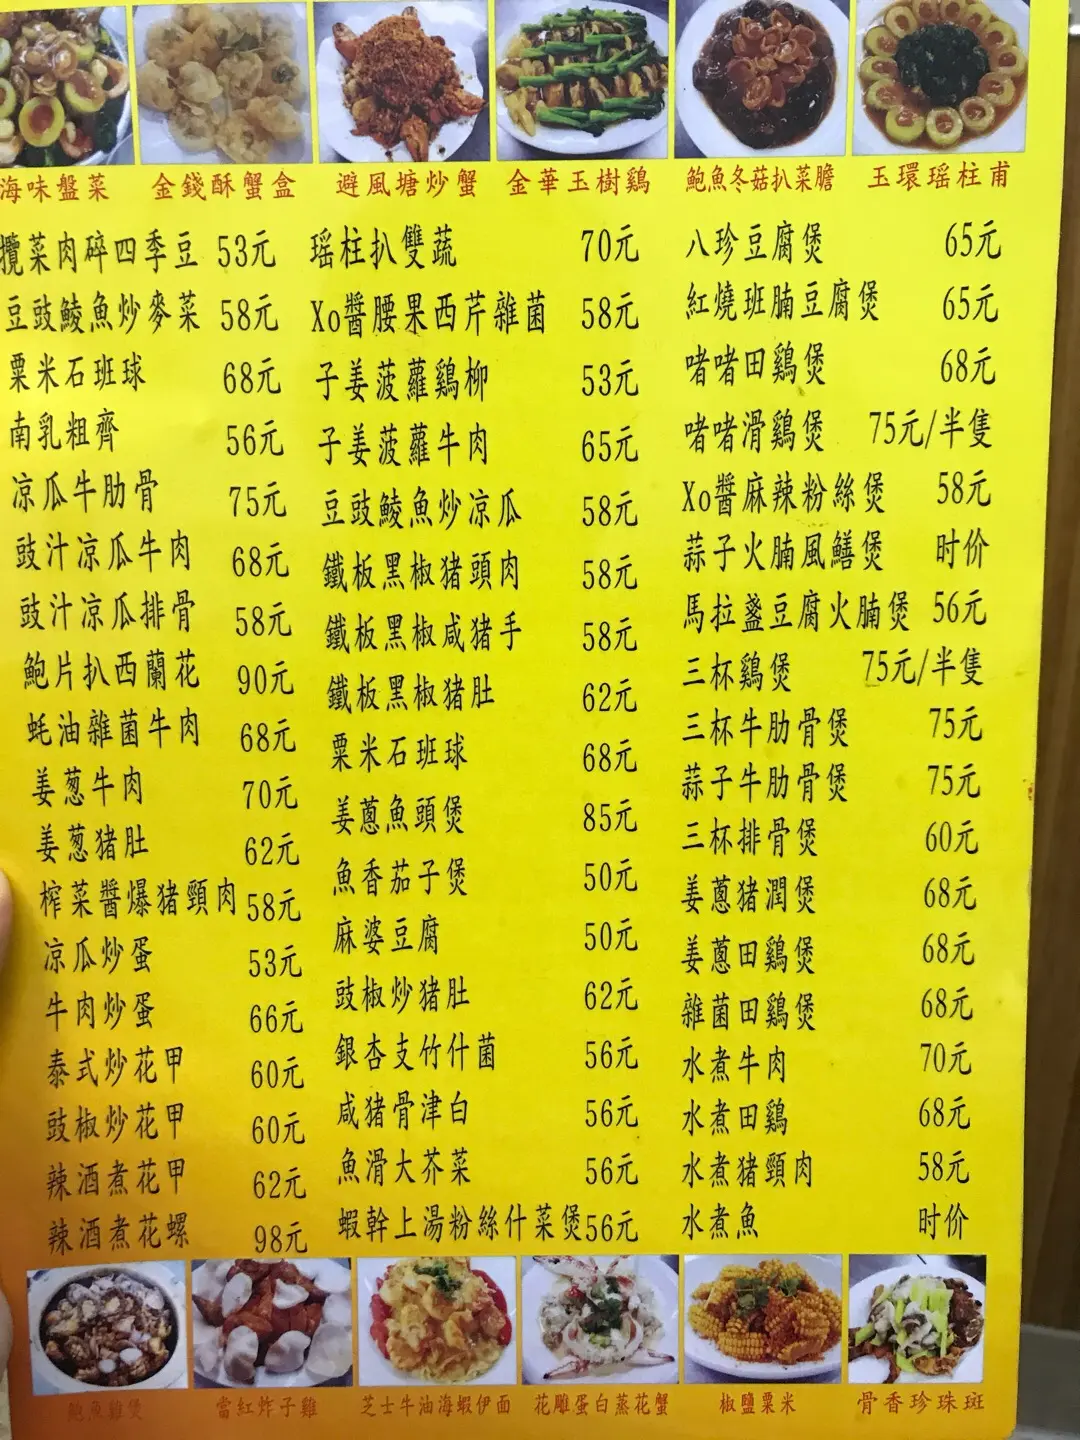 海味盤菜
金錢酥蟹盒
避風塘炒蟹
金華玉樹鷄
鮑魚冬菇扒菜膽
玉環瑤柱甫
攬菜肉碎四季豆 53元
豆豉鯪魚炒麥菜 58元
粟米石班球 68元
南乳粗齊 56元
凉瓜牛肋骨 75元
豉汁凉瓜牛肉 68元
豉汁凉瓜排骨 58元
鮑片扒西蘭花 90元
蚝油雜菌牛肉 68元
姜葱牛肉 70元
姜葱猪肚 62元
榨菜醬爆猪頸肉 58元
凉瓜炒蛋 53元
牛肉炒蛋 66元
泰式炒花甲 60元
豉椒炒花甲 60元
辣酒煮花甲 62元
辣酒煮花螺 98元
瑶柱扒雙蔬 70元
Xo醬腰果西芹雜菌 58元
子姜菠蘿鷄柳 53元
子姜菠蘿牛肉 65元
豆豉鯪魚炒凉瓜 58元
鐵板黑椒猪頭肉 58元
鐵板黑椒咸猪手 58元
鐵板黑椒猪肚 62元
粟米石班球 68元
姜蔥魚頭煲 85元
魚香茄子煲 50元
麻婆豆腐 50元
豉椒炒猪肚 62元
銀杏支竹什菌 56元
咸猪骨津白 56元
魚滑大芥菜 56元
蝦幹上湯粉絲什菜煲 56元
八珍豆腐煲 65元
紅燒班腩豆腐煲 65元
啫啫田鷄煲 68元
啫啫滑鷄煲 75元/半隻
Xo醬麻辣粉絲煲 58元
蒜子火腩風鱔煲 时价
馬拉盞豆腐火腩煲 56元
三杯鷄煲 75元/半隻
三杯牛肋骨煲 75元
蒜子牛肋骨煲 75元
三杯排骨煲 60元
姜蔥猪潤煲 68元
姜蔥田鷄煲 68元
雜菌田鷄煲 68元
水煮牛肉 70元
水煮田鷄 68元
水煮猪頸肉 58元
水煮魚 时价
鮑魚雞煲
當紅炸子雞
芝士牛油海蝦伊面
花雕蛋白蒸花蟹
椒鹽粟米
骨香珍珠斑